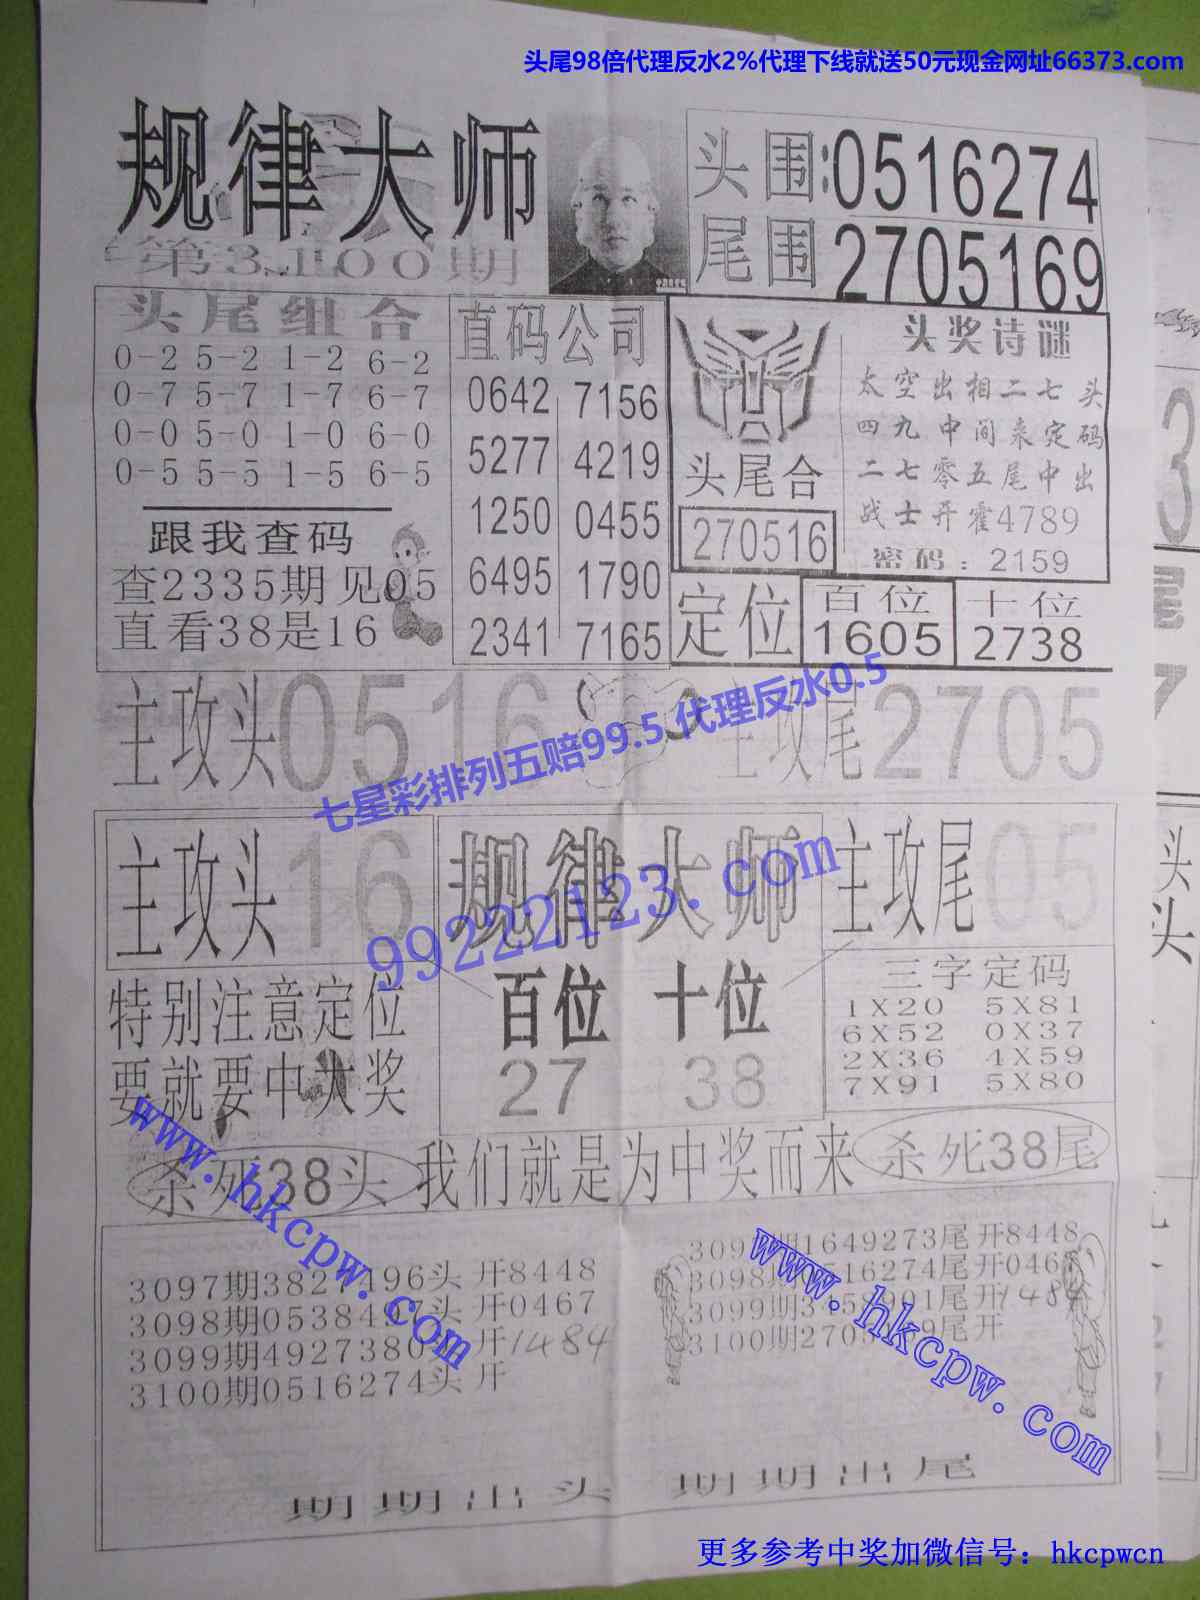 头尾98倍代理反水2%代理下线就送50元现金网址66373.com
规律大师
第3100期
头围:0516274
尾围 2705169
头尾组合
0-2 5-2 1-2 6-2
0-7 5-7 1-7 6-7
0-0 5-0 1-0 6-0
0-5 5-5 1-5 6-5
跟我查码
查2335期见05
直看38是16
直码公司
0642 7156
5277 4219
1250 0455
6495 1790
2341 7165
头尾合
270516
头奖诗谜
太空出相二七头
四九中间来定码
二七零五尾中出
战士开霍4789
密码:2159
定位
百位
1605
十位
2738
主攻头0516
主攻尾2705
七星彩排列五赔99.5 代理反水0.5
主攻头16
规律大师
主攻尾05
99222123.com
特别注意定位
要就要中大奖
百位 十位
27 38
三字定码
1X20 5X81
6X52 0X37
2X36 4X59
7X91 5X80
杀死38头
我们就是为中奖而来
杀死38尾
www.hkcpw.com
3097期3827496头 开8448
3098期0538497头 开0467
3099期4927380头 开1484
3100期0516274头 开
www.hkcpw.com
3097期1649273尾 开8448
3098期0516274尾开0467
3099期3458901尾开1484
3100期2705169尾开
期期出头 期期出尾
更多参考中奖加微信号：hkcpwcn